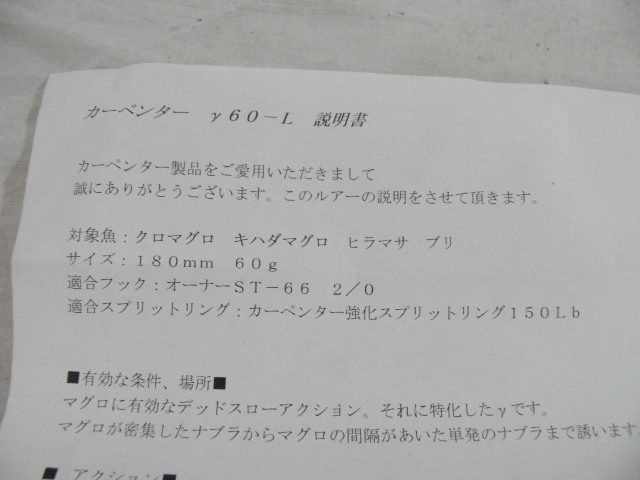 カーペンター　γ６０－Ｌ　説明書
カーペンター製品をご愛用いただきまして
誠にありがとうございます。このルアーの説明をさせて頂きます。
対象魚：クロマグロ　キハダマグロ　ヒラマサ　ブリ
サイズ：１８０ｍｍ　６０ｇ
適合フック：オーナーＳＴ－６６　２／０
適合スプリットリング：カーペンター強化スプリットリング１５０Ｌｂ
■有効な条件、場所■
マグロに有効なデッドスローアクション。それに特化したγです。
マグロが密集したナブラからマグロの間隔があいた単発のナブラまで誘います。
■ アクション■